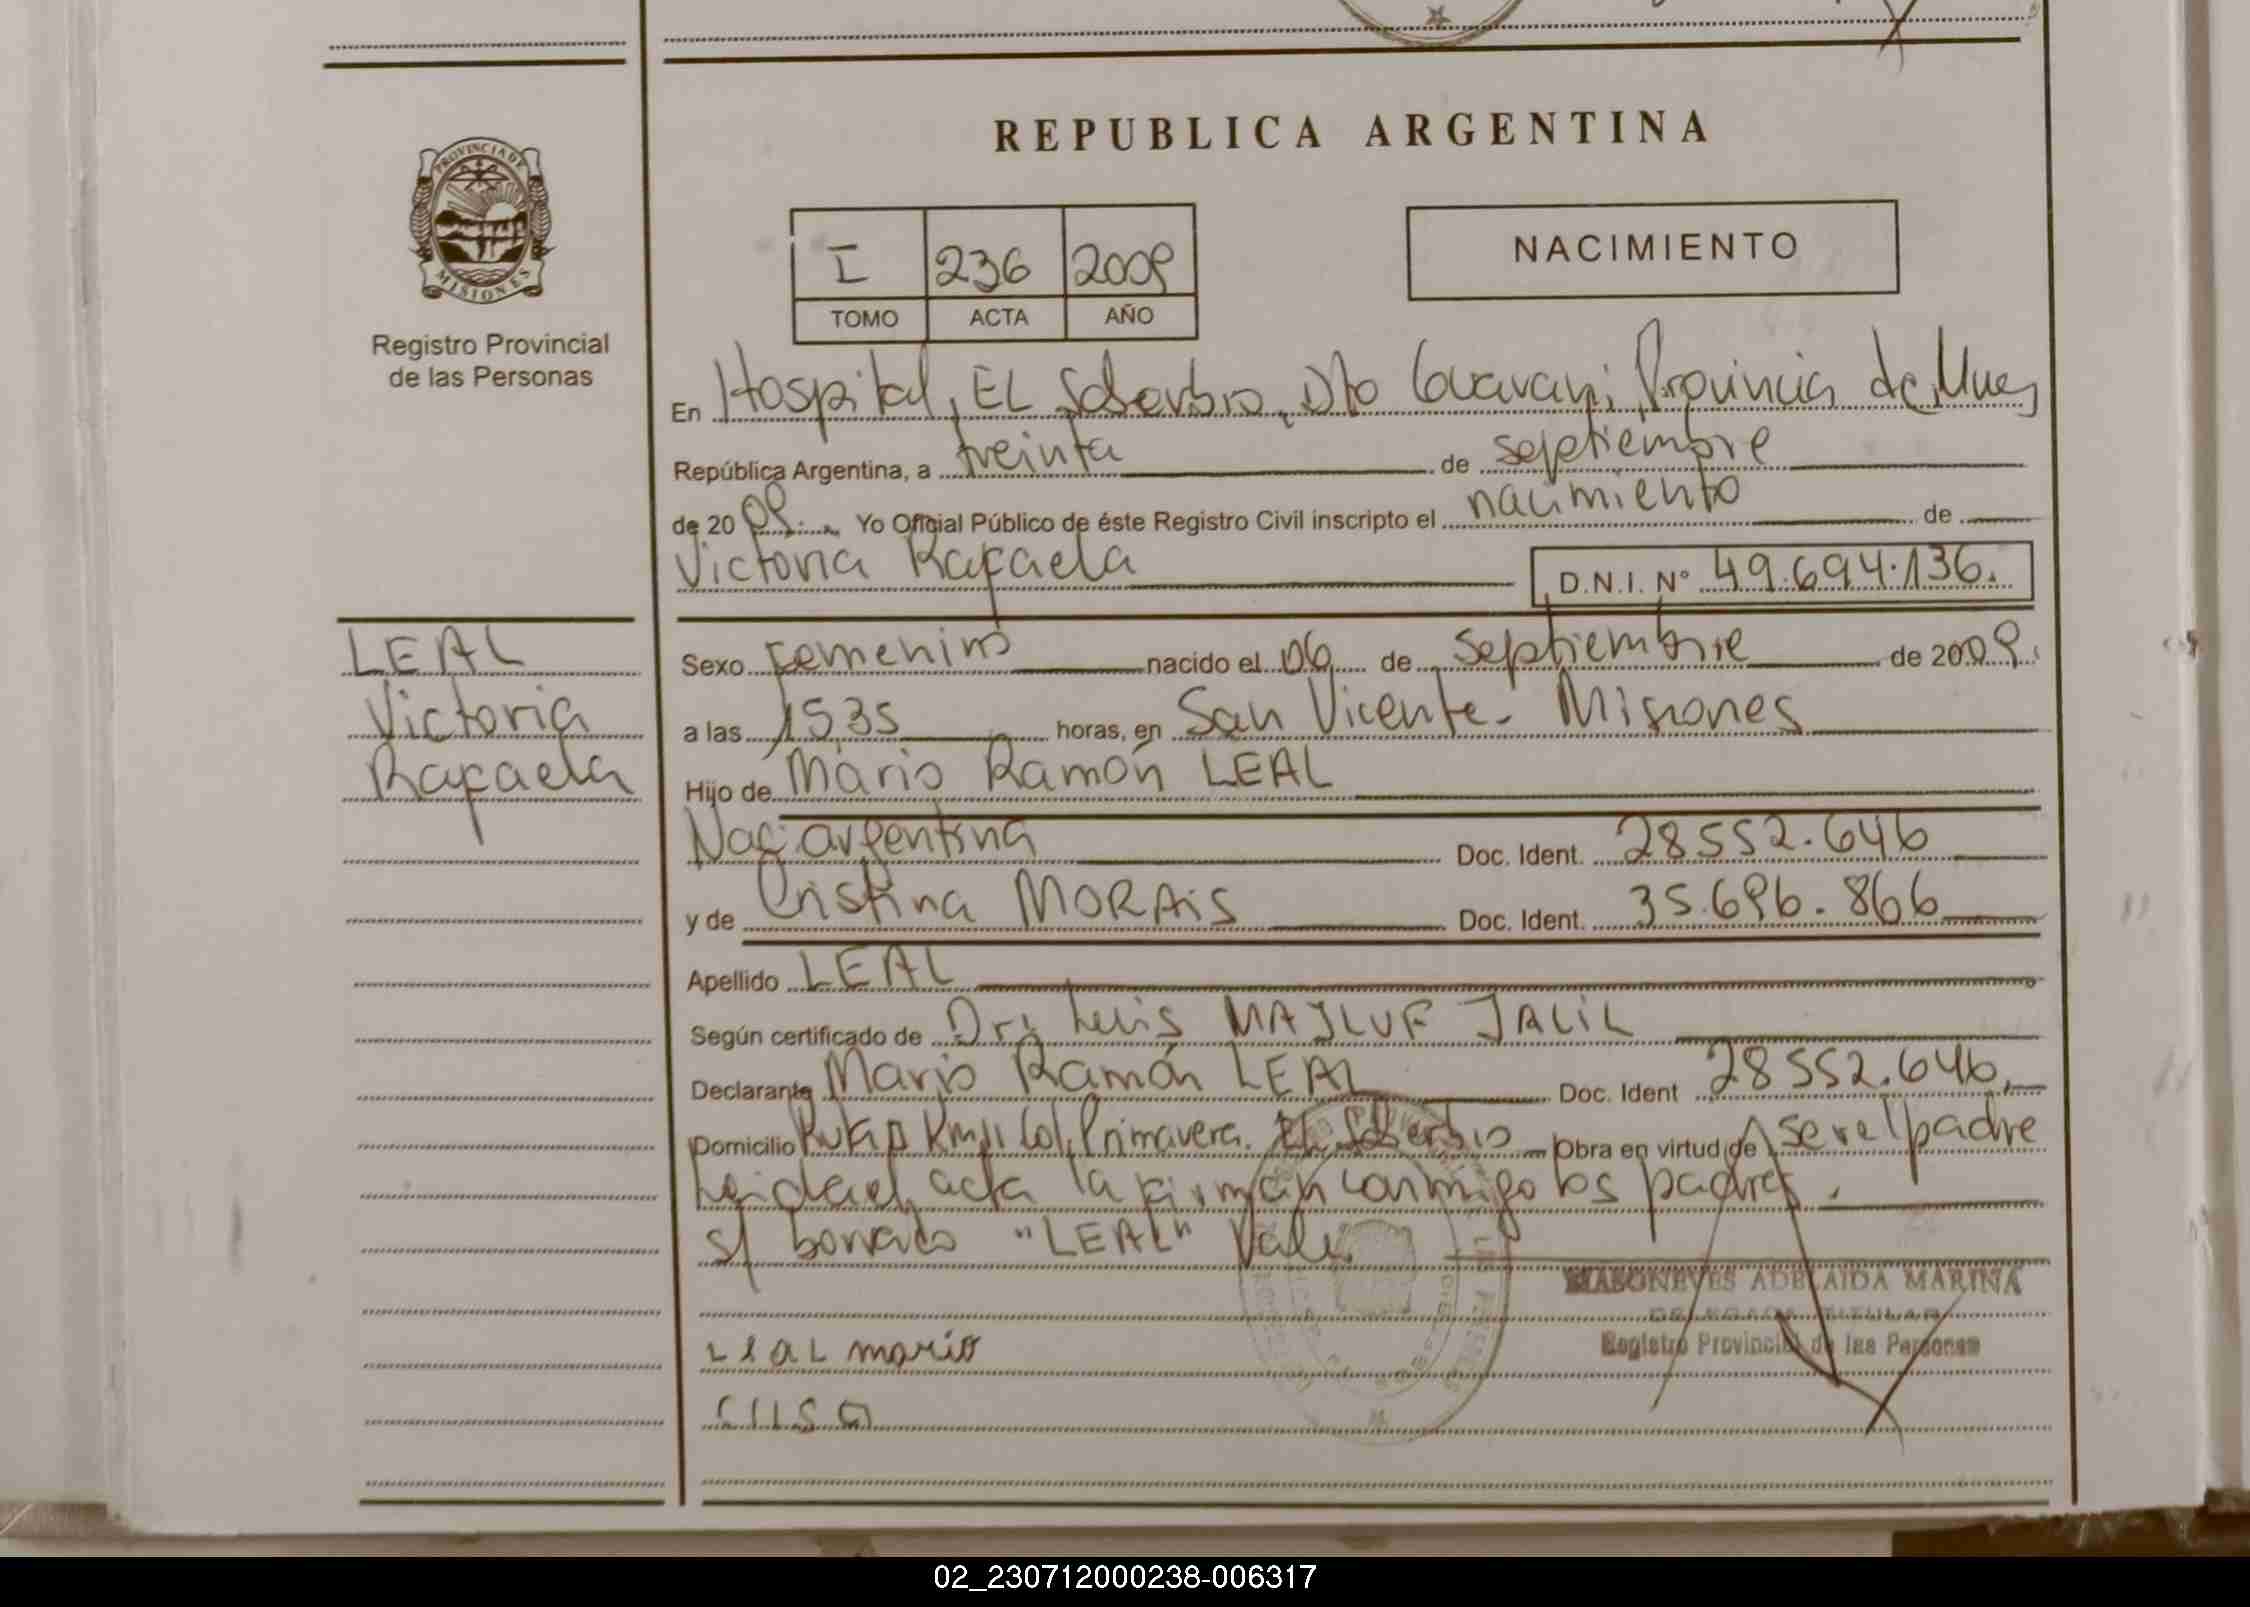 REPUBLICA ARGENTINA
PROVINCIA DE
MISIONES
Registro Provincial
de las Personas
I 236 2009
TOMO ACTA AÑO
NACIMIENTO
En Hospital, EL Soberbio, Dto Guarani, Provincia de Mnes
República Argentina, a treinta de septiembre
de 2009. Yo Oficial Público de éste Registro Civil inscripto el nacimiento de
Victoria Rafaela D.N.I. Nº 49.694.136.
LEAL
Victoria
Rafaela
Sexo Femenino nacido el 06 de Septiembre de 2009.
a las 15,35 horas, en San Vicente - Misiones
Hijo de Mario Ramón LEAL
Nac: argentina Doc. Ident. 28.552.646
y de Cristina MORAIS Doc. Ident. 35.696.866
Apellido LEAL
Según certificado de Dr. Luis MAJLUF JALIL
Declarante Mario Ramón LEAL Doc. Ident 28552.646,
Domicilio Ruta Km 11 Col. Primavera. El Soberbio Obra en virtud de ser el padre
Leida el acta la firman conmigo los padres.
s/ borrado "LEAL" Vale.
ADELAIDA MARINA
DELEGADA TITULAR
Registro Provincial de las Personas
LeaL mario
02_230712000238-006317